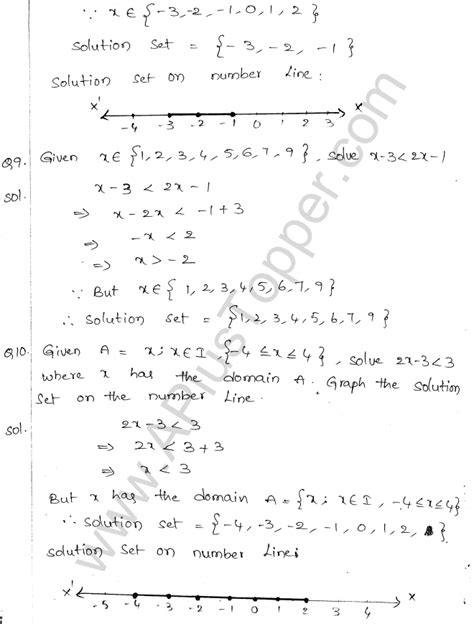 ∵ x ∈ {-3, -2, -1, 0, 1, 2}
Solution Set = {-3, -2, -1}
Solution set on number Line:
x' -4 -3 -2 -1 0 1 2 3 x
Q9. Given x∈ {1, 2, 3, 4, 5, 6, 7, 9}, solve x-3<2x-1
sol. x-3 < 2x-1
⇒ x-2x < -1+3
⇒ -x < 2
⇒ x > -2
∵ But x∈{ 1, 2, 3, 4, 5, 6, 7, 9}
∴ Solution set = {1, 2, 3, 4, 5, 6, 7, 9}
Q10. Given A = x; x∈I, {-4 ≤ x ≤ 4}, solve 2x-3<3
where x has the domain A. Graph the solution
Set on the number Line.
sol. 2x-3<3
⇒ 2x<3+3
⇒ x<3
But x has the domain A={x; x∈I, -4≤x≤4}
∴ Solution set = {-4, -3, -2, -1, 0, 1, 2, }
Solution Set on number Line:
x' -5 -4 -3 -2 -1 0 1 2 4 x
www.APlusTopper.com